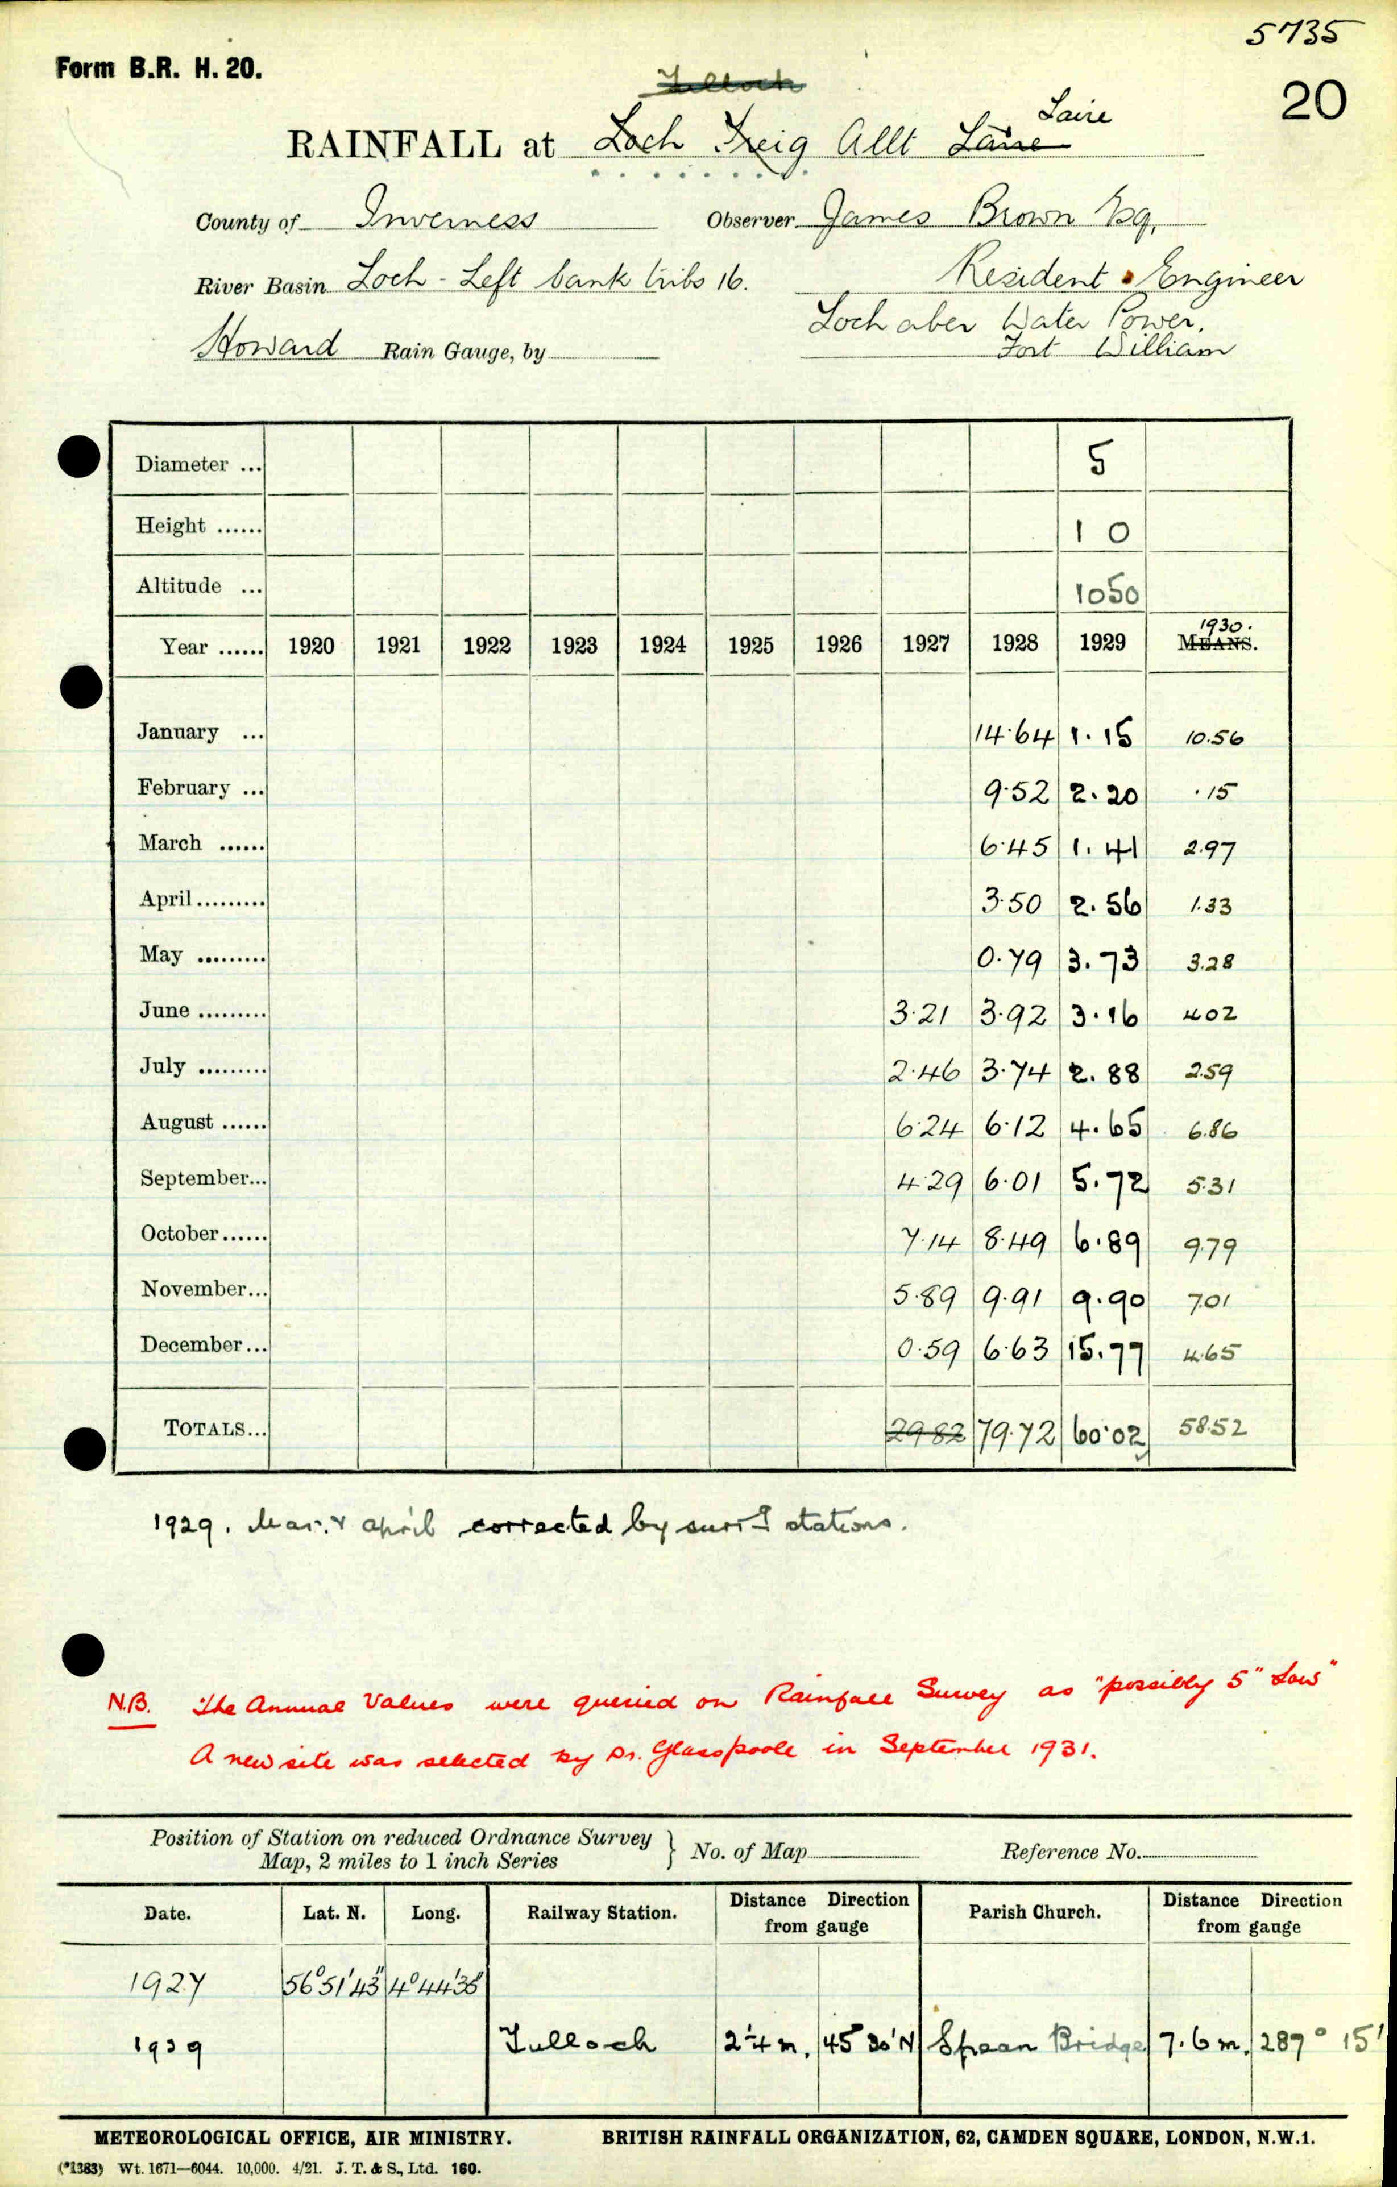 5735
Form B.R. H. 20.
20
Tulloch
Laire
RAINFALL at Loch Treig Allt Laire
County of Inverness Observer James Brown Esq,
River Basin Loch - Left bank tribs 16. Resident Engineer
Lochaber Water Power.
Howard Rain Gauge, by Fort William
Diameter ... 5
Height ...... 1 0
Altitude ... 1050
1930.
Year ...... 1920 1921 1922 1923 1924 1925 1926 1927 1928 1929 MEANS.
January ... 14.64 1.15 10.56
February ... 9.52 2.20 .15
March ...... 6.45 1.41 2.97
April ......... 3.50 2.56 1.33
May ......... 0.79 3.73 3.28
June ......... 3.21 3.92 3.16 4.02
July ......... 2.46 3.74 2.88 2.59
August ...... 6.24 6.12 4.65 6.86
September... 4.29 6.01 5.72 5.31
October ...... 7.14 8.49 6.89 9.79
November... 5.89 9.91 9.90 7.01
December ... 0.59 6.63 15.77 4.65
TOTALS... 29.82 79.72 60.02 58.52
1929. Mar. & april corrected by surrg stations.
N.B. The Annual Values were queried on Rainfall Survey as "possibly 5" low"
A new site was selected by Dr. Glasspoole in September 1931.
Position of Station on reduced Ordnance Survey
Map, 2 miles to 1 inch Series } No. of Map Reference No.
Date. Lat. N. Long. Railway Station. Distance Direction from gauge Parish Church. Distance Direction from gauge
1927 56°51'43" 4°44'35"
1929 Tulloch 2¼ m. 45° 30' N Spean Bridge 7.6 m. 287° 15'
METEOROLOGICAL OFFICE, AIR MINISTRY. BRITISH RAINFALL ORGANIZATION, 62, CAMDEN SQUARE, LONDON, N.W.1.
(*1383) Wt. 1671—6044. 10,000. 4/21. J. T. & S., Ltd. 160.